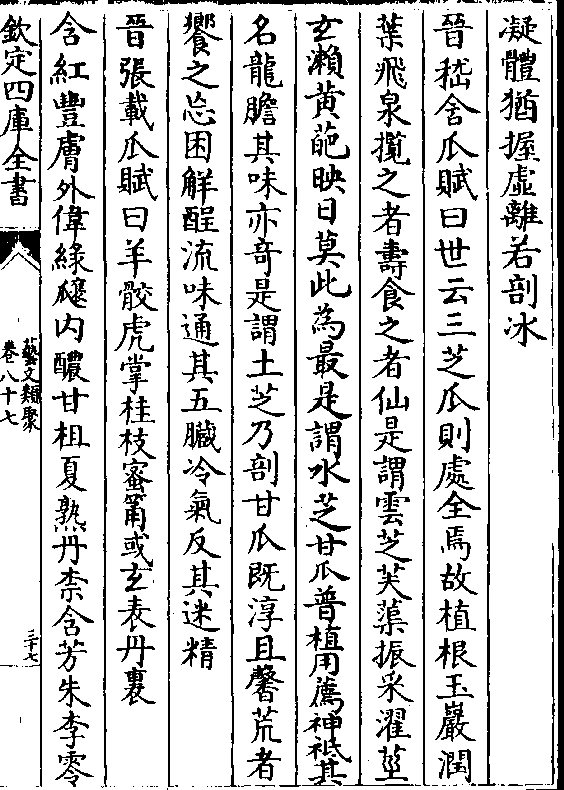 凝體猶握虛離若剖冰
晉嵇含瓜賦曰世云三芝瓜則處全焉故植根玉巖潤
葉飛泉攬之者壽食之者仙是謂雲芝芙蕖振采濯莖
玄瀨黄葩映日莫此為最是謂水芝甘瓜普植用薦神祇其
名龍膽其味亦奇是謂土芝乃剖甘瓜既淳且馨荒者
饗之忘困解酲流味通其五臟冷氣反其迷精
晉張載瓜賦曰羊骹虎掌桂枝蜜筩或玄表丹裏
含紅豐膚外偉綠瓤内醲甘柤夏熟丹柰含芳朱李零
欽定四庫全書
藝文類聚
卷八十七
三十七